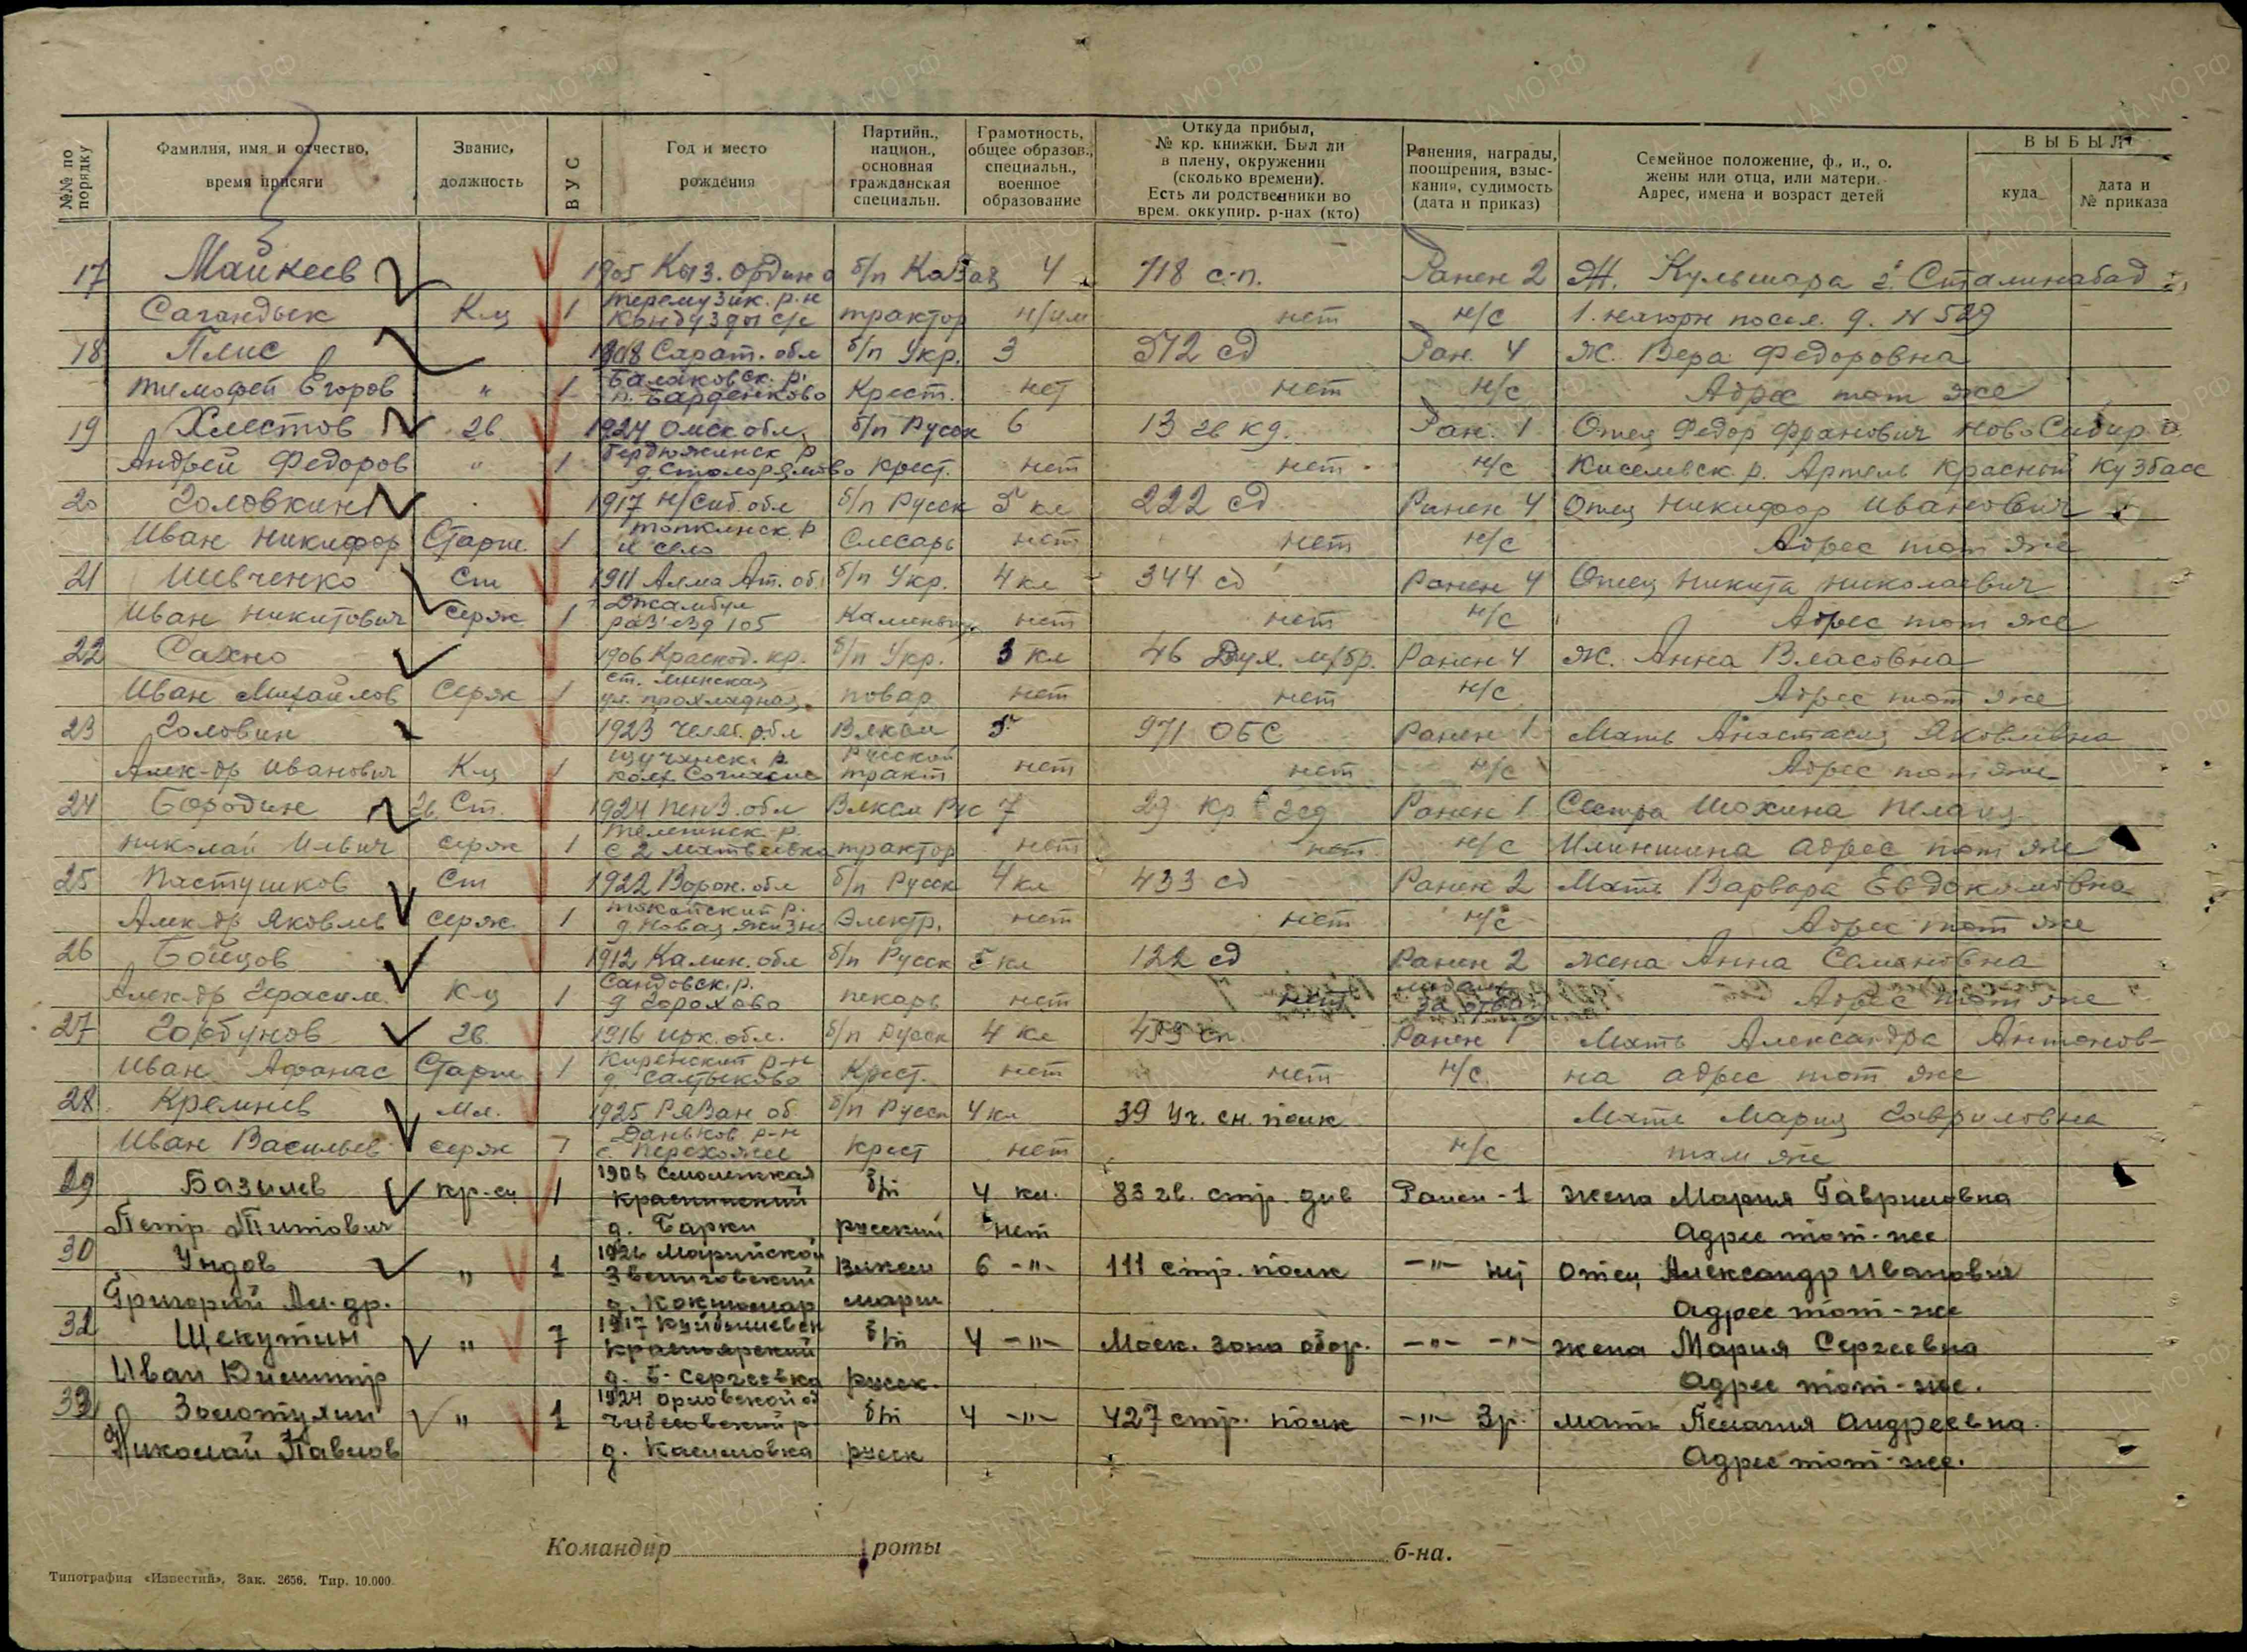 №№ по порядку
Фамилия, имя и отчество, время присяги
Звание, должность
ВУС
Год и место рождения
Партийн., национ., основная гражданская специальн.
Грамотность, общее образов., специальн., военное образование
Откуда прибыл, № кр. книжки. Был ли в плену, окружении (сколько времени). Есть ли родственники во врем. оккупир. р-нах (кто)
Ранения, награды, поощрения, взыскания, судимость (дата и приказ)
Семейное положение, ф., и., о. жены или отца, или матери. Адрес, имена и возраст детей
ВЫБЫЛ
куда
дата и № приказа
17 Майкеев 1905 Кыз. Ордин о б/п Казах 4 718 с.п. Ранен 2 Ж. Кульшара г. Сталинабад
Сагандык К-ц 1 трактор нет н/с 1. посел. д. N 529
18 Плис 1908 Сарат. обл б/п Укр. 3 572 сд Ран. 4 Ж. Вера Федоровна
Тимофей Егоров " 1 Балаковск. р. Крест. нет нет н/с Адрес тот же
19 Хлестов гв 1924 Омск обл, б/п Русск 6 13 гв кд. Ран. 1 Отец Федор Новосибир о
Андрей Федоров " 1 Бердюжинск р крест. нет нет н/с Киселевск. р. Артель Красной Кузбасс
20 Головкин 1917 Н/Сиб. обл б/п Русск 5 кл 222 сд Ранен 4 Отец Никифор Иванович
Иван Никифор Старш. 1 Топкинск. р и село Слесарь нет нет н/с Адрес тот же
21 Шевченко Ст 1911 Алма Ат. об. б/п Укр. 4 кл 344 сд Ранен 4 Отец Никита Николаевич
Иван Никитович серж 1 Джамбул раз'езд 105 нет нет н/с Адрес тот же
22 Сахно 1906 Краснод. кр. б/п Укр. 3 кл 46 м/бр. Ранен 4 Ж. Анна Власовна
Иван Михайлов Серж 1 ул. прохладная повар нет нет н/с Адрес тот же
23 Головин 1923 Челяб. обл Влксм 5 971 ОБС Ранен 1 Мать Анастасия Яковлевна
Алек-др Иванович К-ц 1 Щучанск. р. Русской тракт нет нет н/с Адрес тот же
24 Бородин гв Ст. 1924 Пенз. обл Влксм Рус 7 Ранен 1 Сестра Шохина Пелагия
Николай Ильич серж 1 с 2 Матвеевка трактор нет нет н/с Ильинишна адрес тот же
25 Пастушков Ст 1922 Ворон. обл б/п Русск 4 кл 433 сд Ранен 2 Мать Варвара Евдокимовна
Алек-др Яковлев серж. 1 Токайский р. д. Новая жизнь Электр. нет нет н/с Адрес тот же
26 Бойцов 1912 Калин. обл б/п Русск 5 кл 122 сд Ранен 2 жена Анна Семеновна
Алек-др Герасим. К-ц 1 Сандовск. р. д Горохово пекарь нет нет медаль за отвагу Адрес тот же
27 Горбунов гв. 1916 Ирк. обл. б/п Русск 4 кл сп. Ранен 1 Мать Александра Антонов-
Иван Афанас Старш 1 Киренский р-н д. Салтыково Крест. нет нет н/с. на адрес тот же
28 Кремнев Мл. 1925 Рязан об. б/п Русск 4 кл 39 уч. сн. полк Мать Мария Гавриловна
Иван Васильев серж 7 Даньков р-н крест нет н/с там же
29 Базилев кр-ец 1 1906 Смоленская Краснинский б/п 4 кл. 83 гв. стр. див Ранен - 1 жена Мария Гавриловна
Петр Титович д. Барки русский нет Адрес тот-же
30 Ундов " 1 1926 Марийской Звениговский Влксм 6 -"- 111 стр. полк -"- отец Александр Иванович
Григорий Ал-др. д. Кокшамар мари Адрес тот-же
Щекутин " 7 1917 Куйбышевск Красноярский б/п 4 -"- Моск. зона обор. -"- -"- жена Мария Сергеевна
Иван Димитр д. Б-Сергеевка русск. Адрес тот-же.
Золотухин " 1 1924 Орловской об б/п 4 -"- 427 стр. полк -"- 3р. мать Пелагия Андреевна.
Николай Павлов д. Касимовка русск Адрес тот-же.
Командир роты б-на.
Типография «Известий», Зак. 2656. Тир. 10.000.